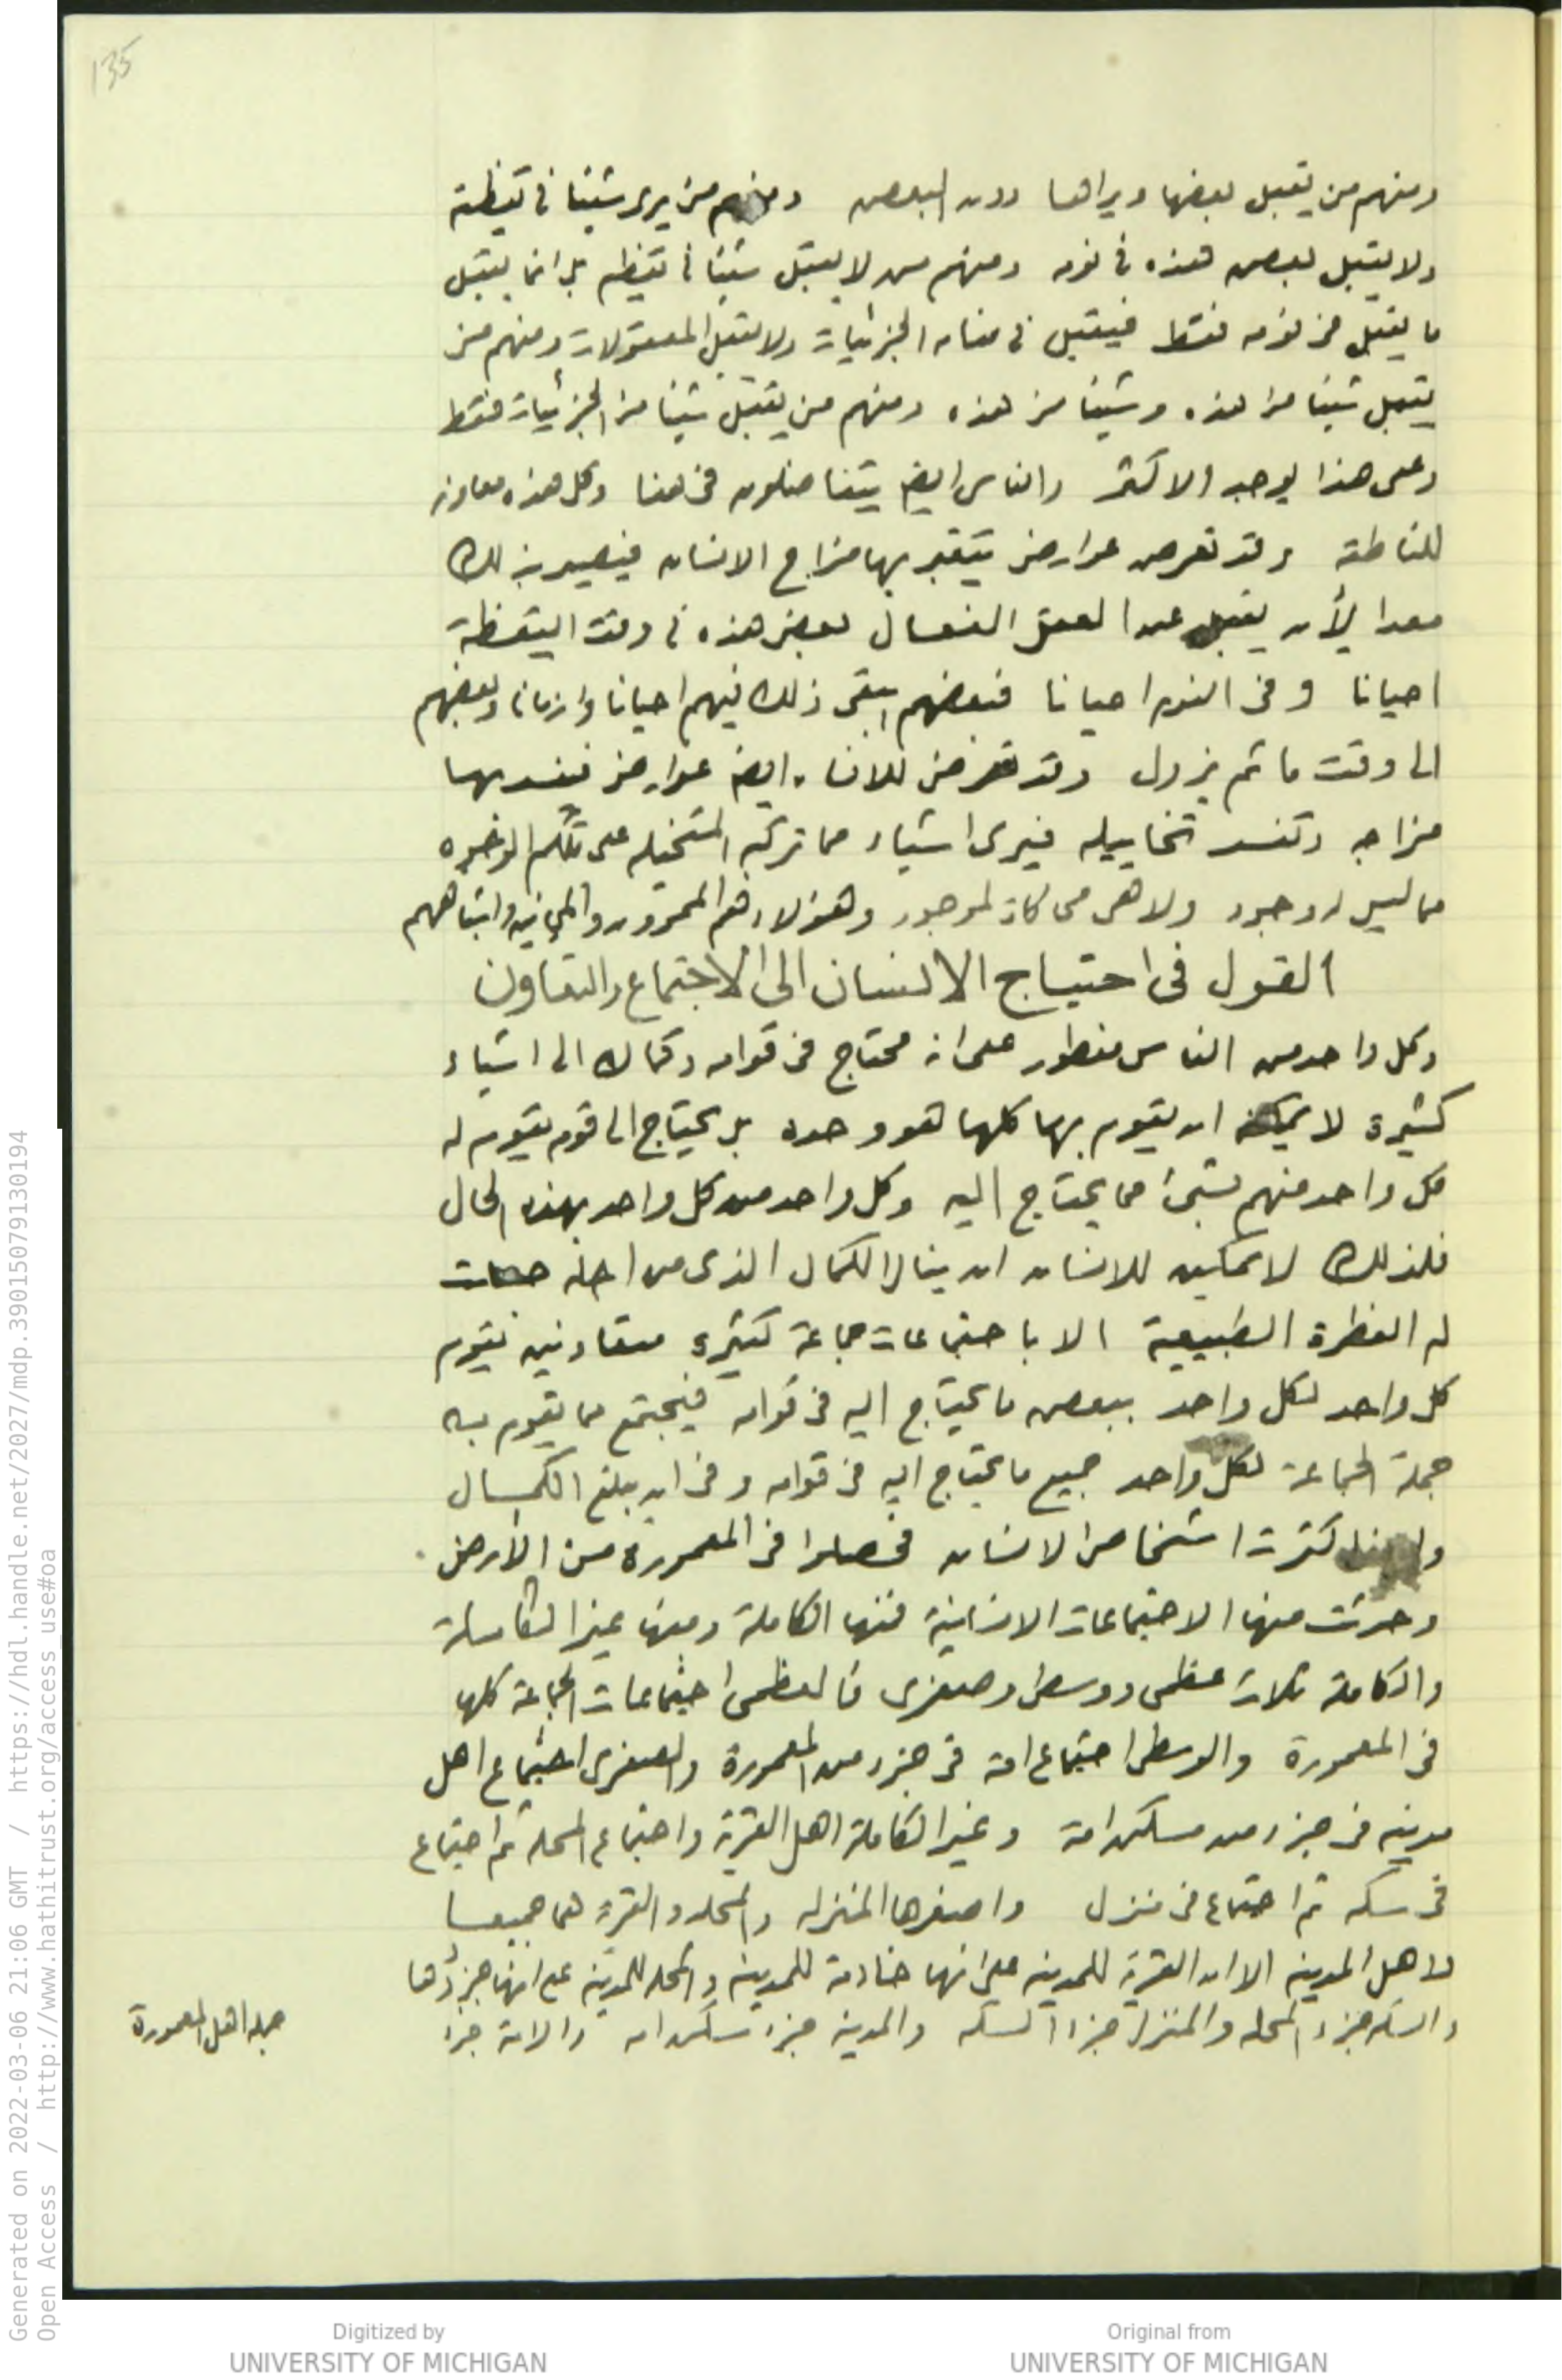 135
ومنهم من يقبل بعضها ويراها دون البعض ومنهم من يرى شيئا فى يقظته
ولا يقبل بعض هذه فى نومه ومنهم من لا يقبل شيئا فى يقظته بل انما يقبل
ما يقبل فى نومه فقط فيقبل فى منامه الجزئيات ولا يقبل المعقولات ومنهم من
يقبل شيئا من هذه وشيئا من هذه ومنهم من يقبل شيئا من الجزئيات فقط
وعلى هذا يوجد الاكثر والناس ايضا يتفاضلون فى هذا وكل هذه معاونه
للناطقة وقد تعرض عوارض يتغير بها مزاج الانسان فيصير بذلك
معدا لأن يقبل عن العقل الفعال بعض هذه فى وقت اليقظة
احيانا وفى النوم احيانا فبعضهم يبقى ذلك فيهم احيانا وازمانا وبعضهم
الى وقت ما ثم يزول وقد تعرض للانسان ايضا عوارض فيفسد بها
مزاجه وتفسد تخاييله فيرى اشياء مما تركبه المتخيله على تلك الوجوه
مما ليس له وجود ولا هى محاكاة لموجود وهؤلاء هم الممرورون والمجانين واشباههم
القول فى احتياج الانسان الى الاجتماع والتعاون
وكل واحد من الناس مفطور على انه محتاج فى قوامه وكماله الى اشياء
كثيرة لا يمكنه ان يقوم بها كلها هو وحده بل يحتاج الى قوم يقوم له
كل واحد منهم بشئ مما يحتاج اليه وكل واحد من كل واحد بهذه الحال
فلذلك لا يمكن للانسان ان ينال الكمال الذى من اجله جعلت
له الفطرة الطبيعية الا باجتماعات جماعة كثيرة متعاونين يقوم
كل واحد لكل واحد ببعض ما يحتاج اليه فى قوامه فيجتمع مما يقوم به
جملة الجماعة لكل واحد جميع ما يحتاج اليه فى قوامه وفى ان يبلغ الكمال
ولهذا كثرت اشخاص الانسان فحصلوا فى المعمورة من الأرض
وحدثت منها الاجتماعات الانسانية فمنها الكاملة ومنها غير الكاملة
والكاملة ثلاث عظمى ووسطى وصغرى فالعظمى اجتماعات الجماعة كلها
فى المعمورة والوسطى اجتماع امة فى جزء من المعمورة والصغرى اجتماع اهل
مدينه فى جزء من مسكن امة وغير الكاملة اهل القرية واجتماع المحله ثم اجتماع
فى سكه ثم اجتماع فى منزل واصغرها المنزله والمحله والقرية هما جميعا
لاهل المدينه الا ان القرية للمدينه على انها خادمة للمدينه والمحله للمدينه على انها جزؤها
والسكه جزء المحله والمنزل جزء السكه والمدينه جزء مسكن امه والامة جزء
جمله اهل المعمورة
Generated on 2022-03-06 21:06 GMT / https://hdl.handle.net/2027/mdp.39015079130194
Open Access / http://www.hathitrust.org/access_use#oa
Digitized by
UNIVERSITY OF MICHIGAN
Original from
UNIVERSITY OF MICHIGAN